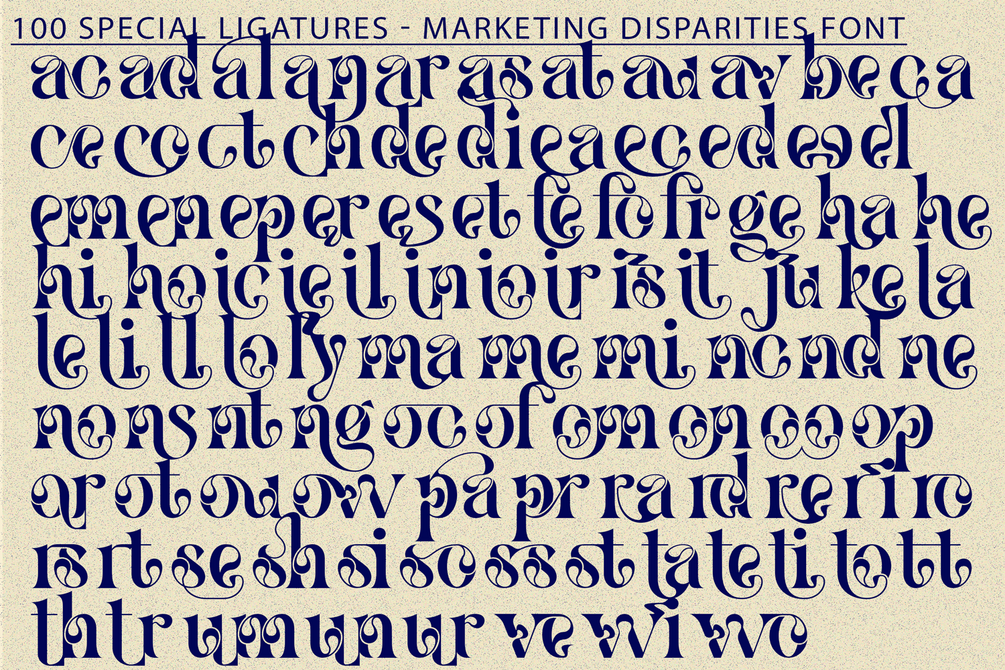 100 SPECIAL LIGATURES - MARKETING DISPARITIES FONT
ac ad al an ar as at au av be ca
ce co ct ch de di ea ec ed ee el
em en ep er es et fe fo fr ge ha he
hi ho ic ie il in io ir is it ju ke la
le li ll lo ly ma me mi nc nd ne
no ns nt ng oc of om on oo op
or ot ou ow pa pr ra rd re ri ro
rs rt se sh si so ss st ta te ti to tt
th tr um un ur ve wi wo